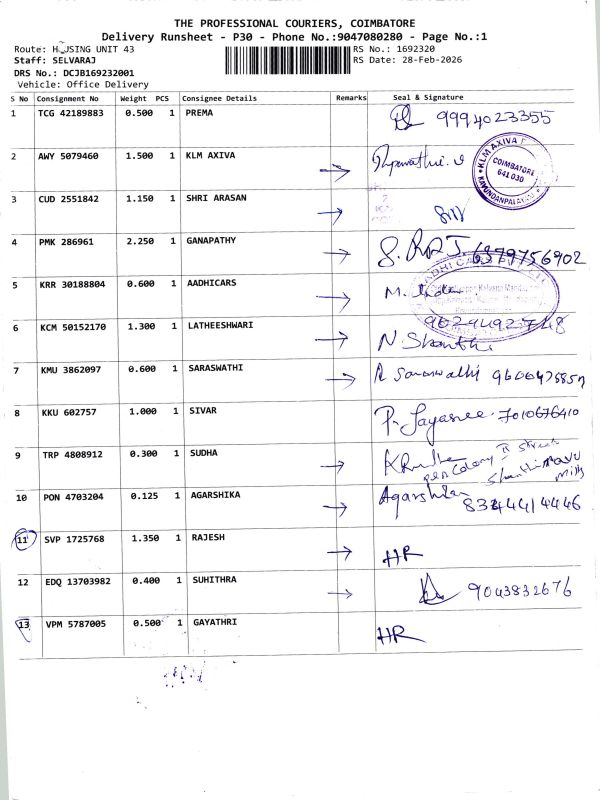 THE PROFESSIONAL COURIERS, COIMBATORE
Delivery Runsheet - P30 - Phone No.:9047080280 - Page No.:1
Route: HOUSING UNIT 43
RS No.: 1692320
Staff: SELVARAJ
RS Date: 28-Feb-2026
DRS No.: DCJB169232001
Vehicle: Office Delivery
S No Consignment No Weight PCS Consignee Details Remarks Seal & Signature
1 TCG 42189883 0.500 1 PREMA 9994023355
2 AWY 5079460 1.500 1 KLM AXIVA
KLM AXIVA COIMBATORE 641 030 KAVUNDANPALAYAM
3 CUD 2551842 1.150 1 SHRI ARASAN
4 PMK 286961 2.250 1 GANAPATHY 6379756902
5 KRR 30188804 0.600 1 AADHICARS
6 KCM 50152170 1.300 1 LATHEESHWARI
N. Shanthi
7 KMU 3862097 0.600 1 SARASWATHI R Saraswathi
8 KKU 602757 1.000 1 SIVAR P. Jayasree. 7010676410
9 TRP 4808912 0.300 1 SUDHA
Colony II Street
Mills
10 PON 4703204 0.125 1 AGARSHIKA Agarshika
8344414446
11 SVP 1725768 1.350 1 RAJESH HR
12 EDQ 13703982 0.400 1 SUHITHRA 9043832676
13 VPM 5787005 0.500 1 GAYATHRI HR